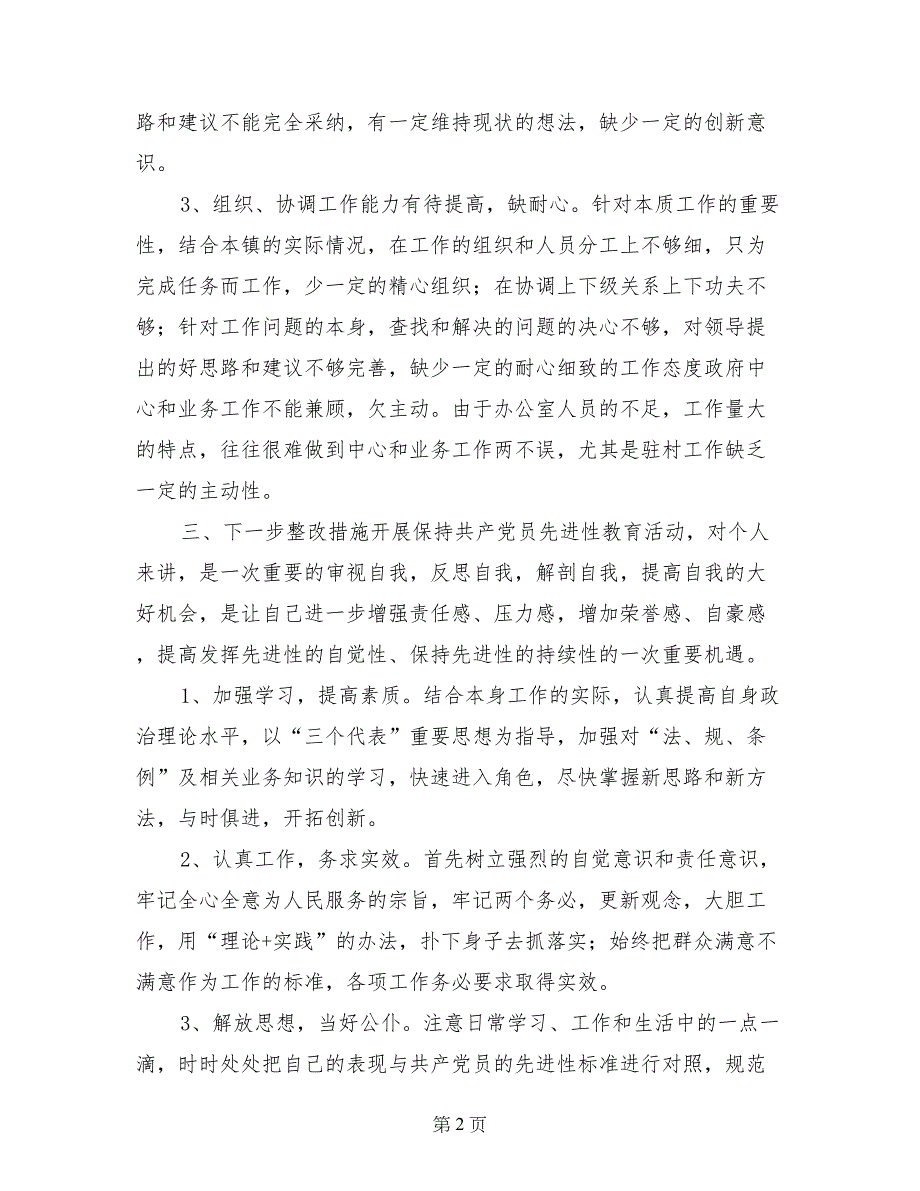 路和建议不能完全采纳，有一定维持现状的想法，缺少一定的创新意
识。
3、组织、协调工作能力有待提高，缺耐心。针对本质工作的重要
性，结合本镇的实际情况，在工作的组织和人员分工上不够细，只为
完成任务而工作，少一定的精心组织；在协调上下级关系上下功夫不
够；针对工作问题的本身，查找和解决的问题的决心不够，对领导提
出的好思路和建议不够完善，缺少一定的耐心细致的工作态度政府中
心和业务工作不能兼顾，欠主动。由于办公室人员的不足，工作量大
的特点，往往很难做到中心和业务工作两不误，尤其是驻村工作缺乏
一定的主动性。
三、下一步整改措施开展保持共产党员先进性教育活动，对个人
来讲，是一次重要的审视自我，反思自我，解剖自我，提高自我的大
好机会，是让自己进一步增强责任感、压力感，增加荣誉感、自豪感
，提高发挥先进性的自觉性、保持先进性的持续性的一次重要机遇。
1、加强学习，提高素质。结合本身工作的实际，认真提高自身政
治理论水平，以“三个代表”重要思想为指导，加强对“法、规、条
例”及相关业务知识的学习，快速进入角色，尽快掌握新思路和新方
法，与时俱进，开拓创新。
2、认真工作，务求实效。首先树立强烈的自觉意识和责任意识，
牢记全心全意为人民服务的宗旨，牢记两个务必，更新观念，大胆工
作，用“理论+实践”的办法，扑下身子去抓落实；始终把群众满意不
满意作为工作的标准，各项工作务必要求取得实效。
3、解放思想，当好公仆。注意日常学习、工作和生活中的一点一
滴，时时处处把自己的表现与共产党员的先进性标准进行对照，规范
第 2 页